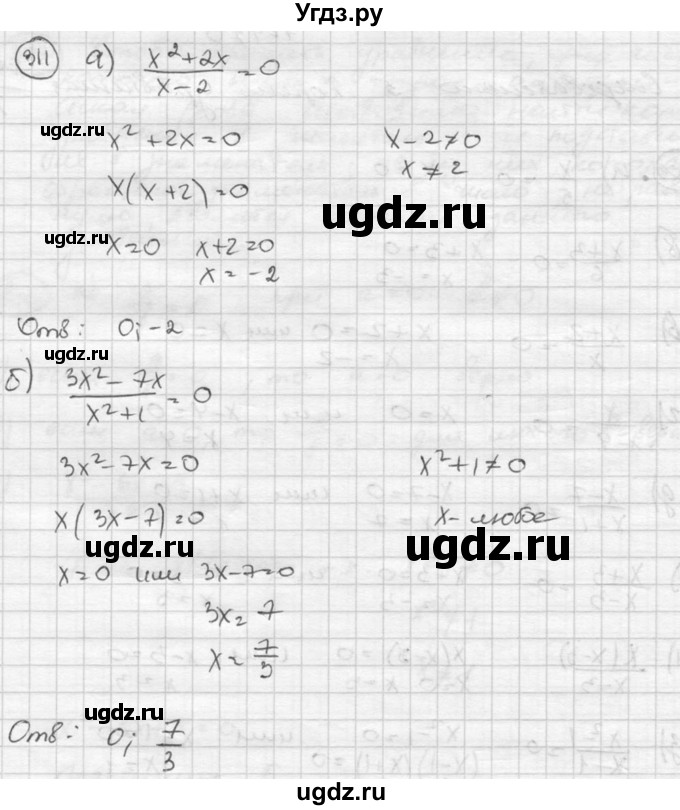 Угдз.ру
311 а) (x²+2x)/(x-2) = 0
ugdz.ru
x²+2x=0 x-2≠0
x≠2
x(x+2)=0
ugdz.ru
ugdz.ru
x=0 x+2=0
x=-2
Отв: 0; -2
ugdz.ru
б) (3x²-7x)/(x²+1) = 0
3x²-7x=0 x²+1≠0
x(3x-7)=0 x-любое
ugdz.ru ugdz.ru
x=0 или 3x-7=0
3x=7
x=7/3
ugdz.ru
Отв: 0; 7/3
ugdz.ru
ugdz.ru